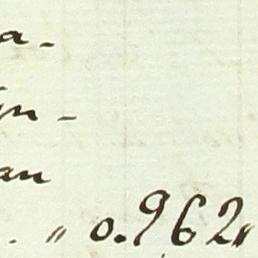 a-
yn-
an
. „ 0.962„